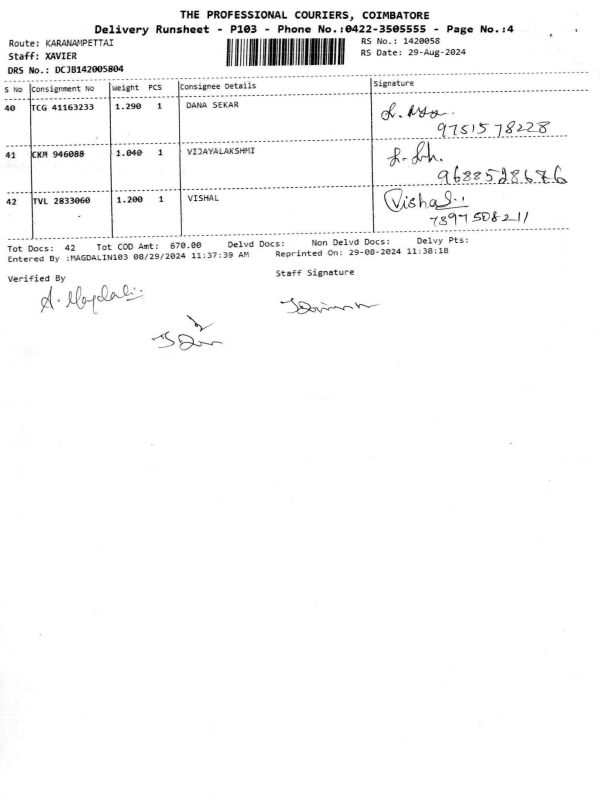 THE PROFESSIONAL COURIERS, COIMBATORE
Delivery Runsheet - P103 - Phone No.:0422-3505555 - Page No.:4
Route: KARANAMPETTAI RS No.: 1420058
Staff: XAVIER RS Date: 29-Aug-2024
DRS No.: DCJB142005804
S No Consignment No Weight PCS Consignee Details Signature
40 TCG 41163233 1.290 1 DANA SEKAR
9751578228
41 CKM 946088 1.040 1 VIJAYALAKSHMI
9688528676
42 TVL 2833060 1.200 1 VISHAL Vishal
7397508211
Tot Docs: 42 Tot COD Amt: 670.00 Delvd Docs: Non Delvd Docs: Delvy Pts:
Entered By :MAGDALIN103 08/29/2024 11:37:39 AM Reprinted On: 29-08-2024 11:38:18
Verified By Staff Signature